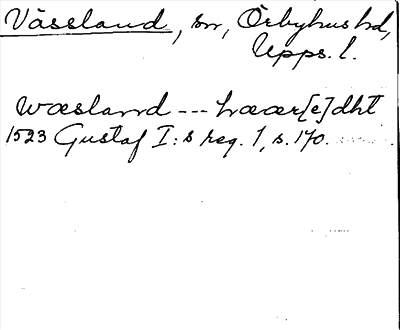 Vässland, sn, Örbyhus hd,
Upps. l.
wæsland --- hæær[e]dht
1523 Gustaf I:s reg. 1, s. 170.